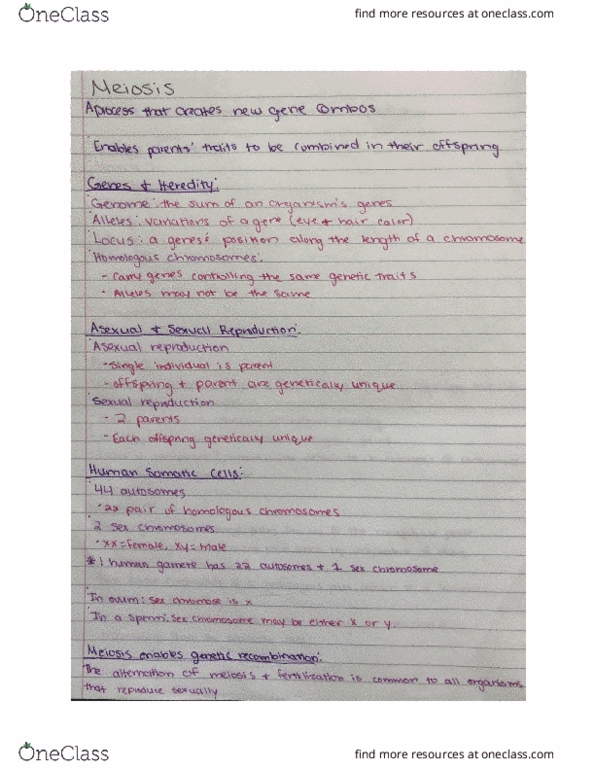 OneClass
find more resources at oneclass.com
Meiosis
A process that creates new gene combos
Enables parents' traits to be combined in their offspring
Genes & Heredity:
Genome: the sum of an organism's genes
Alleles: variations of a gene (eye & hair color)
Locus: a genes' position along the length of a chromosome
Homologous chromosomes:
- Carry genes controlling the same genetic traits
- Alleles may not be the same
Asexual & Sexual Reproduction:
Asexual reproduction
- Single individual is parent
- offspring + parent are genetically unique
Sexual reproduction
- 2 parents
- Each offspring genetically unique
Human Somatic Cells:
44 autosomes
- 22 pair of homologous chromosomes
2 sex chromosomes
- xx=female, xy=male
* 1 human gamete has 22 autosomes + 1 sex chromosome
In ovum: sex chromose is x
In a sperm: sex chromosome may be either x or y.
Meiosis enables genetic recombination:
The alternation of meiosis + fertilization is common to all organisms
that reproduce sexually
OneClass
find more resources at oneclass.com